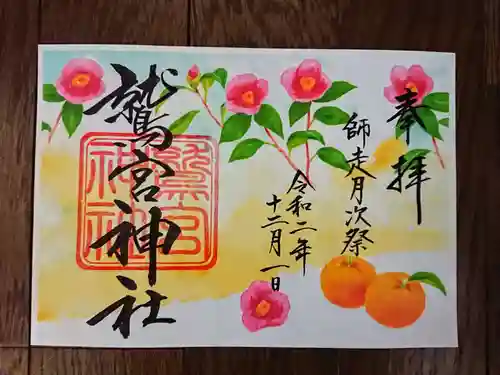 奉拝
師走月次祭
令和二年
十二月一日
鷲宮神社